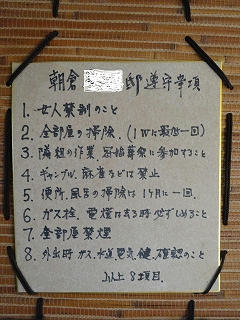 朝倉 邸遵守事項
1. 女人禁制のこと
2. 全部屋の掃除.(1Wに最低一回)
3. 隣組の作業、冠婚葬祭に参加すること
4. ギャンブル、麻雀などは禁止
5. 便所、風呂の掃除は1ヶ月に一回.
6. ガス栓、電燈は去る時必ずしめること
7. 全部屋禁煙
8. 外出時ガス、水道、電気、鍵、確認のこと
以上8項目.